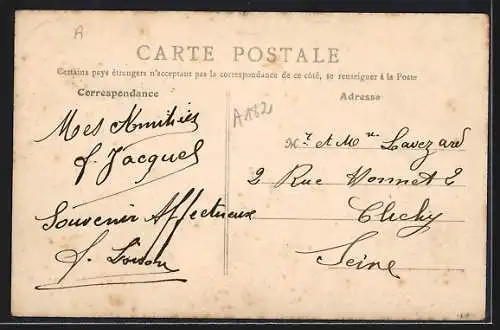 A
CARTE POSTALE
Certains pays étrangers n'acceptant pas la correspondance de ce côté, se renseigner à la Poste
Correspondance
Adresse
A182
Mes Amitiés
f. Jacquel
Souvenir Affectueux
f.
Mr et Mme Lavezard
2 Rue Honnet 2
Clichy
Seine